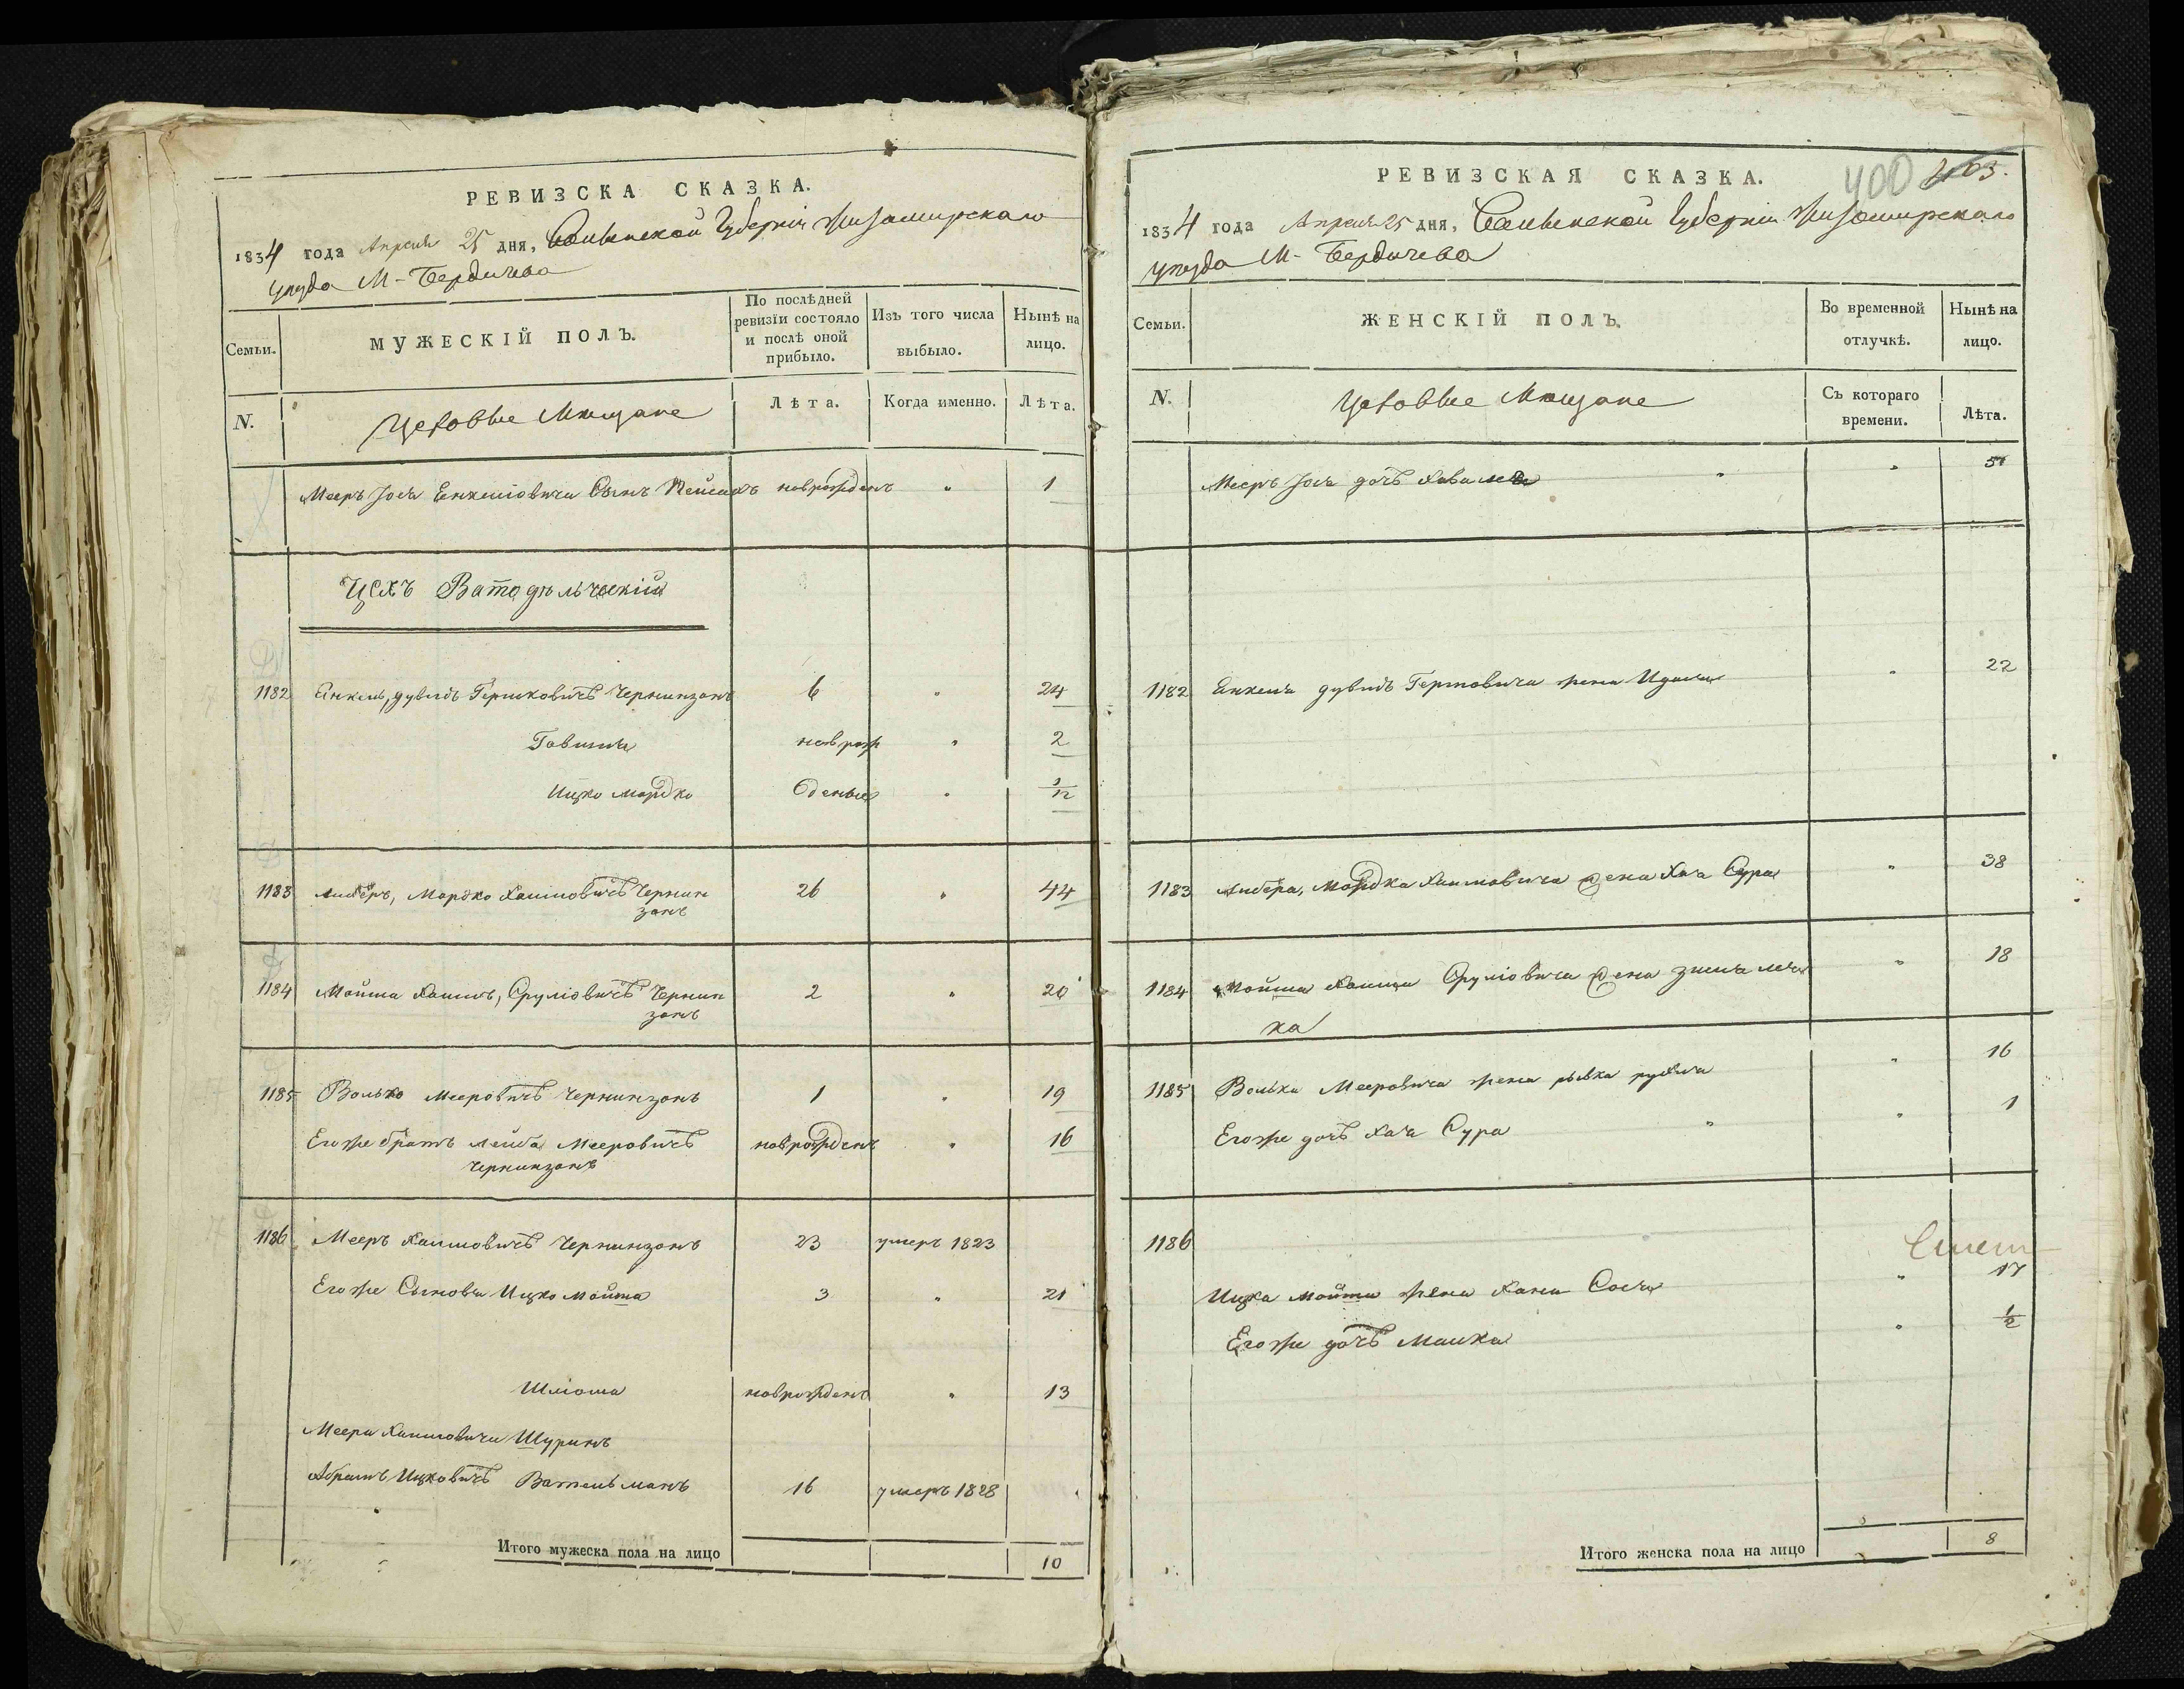 РЕВИЗСКА СКАЗКА.
1834 года Апреля 25 дня, Волынской Губернiи Житомирскаго
уѣзда М- Бердичева
Семьи.
МУЖЕСКIЙ ПОЛЪ.
По послѣдней
ревизiи состояло
и послѣ оной
прибыло.
Изъ того числа
выбыло.
Нынѣ на
лицо.
N.
Цеховые Мещане
Лѣта.
Когда именно.
Лѣта.
Меера Iося Енкелiовича Сынъ Пейсахъ новрожденъ " 1
Цехъ Ватодѣльческiй
1182 Енкель, дувидъ Гершковичъ Чернинзонъ 6 " 24
новрож " 2
Ицко Мордко " 1/12
1183 Либеръ, Мордко Хаимовичъ Чернин 26 " 44
зонъ
1184 Мойша Хаимъ, Срулiовичъ Чернин 2 " 20
зонъ
1185 Волько Мееровичъ Чернинзонъ 1 " 19
Егоже братъ Лейба Мееровичъ новрожденъ " 16
Чернинзонъ
1186 Мееръ Хаимовичъ Чернинзонъ 23 умеръ 1823
Егоже Сыновья Ицко Мойша 3 " 21
Шлiома новрожденъ " 13
Меера Хаимовича Шуринъ
Абрамъ Ицковичъ Вательманъ 16 умеръ 1828
Итого мужеска пола на лицо 10
РЕВИЗСКАЯ СКАЗКА.
400 403.
1834 года Апреля 25 дня, Волынской Губернiи Житомирскаго
уѣзда М- Бердичева
Семьи.
ЖЕНСКIЙ ПОЛЪ.
Во временной
отлучкѣ.
Нынѣ на
лицо.
N.
Цеховые Мещане
Съ котораго
времени.
Лѣта.
Меера Iося дочъ " "
1182 Енкеля дувида жена " 22
1183 Либера, Мордка Хаимовича жена Хая Сура " 38
1184 Мойши Хаима Срулiовича жена " 18
ка
1185 Волька Мееровича жена рывка рухля " 16
Егоже дочъ Хая Сура " " 1
1186
Ицка Мойши жена Хана Сося " 17
Егоже дочъ Малка " 1/2
Итого женска пола на лицо 8